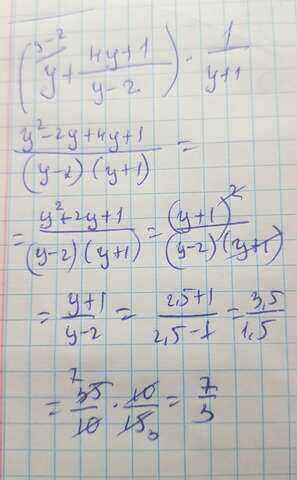 (y^{y-2} + \frac{4y+1}{y-2}) · \frac{1}{y+1}
\frac{y²-2y+4y+1}{(y-2)(y+1)} =
= \frac{y²+2y+1}{(y-2)(y+1)} = \frac{(y+1)²}{(y-2)(y+1)}
= \frac{y+1}{y-2} = \frac{2,5+1}{2,5-1} = \frac{3,5}{1,5}
= \frac{35^{7}}{10} · \frac{10}{15_{3}} = \frac{7}{3}